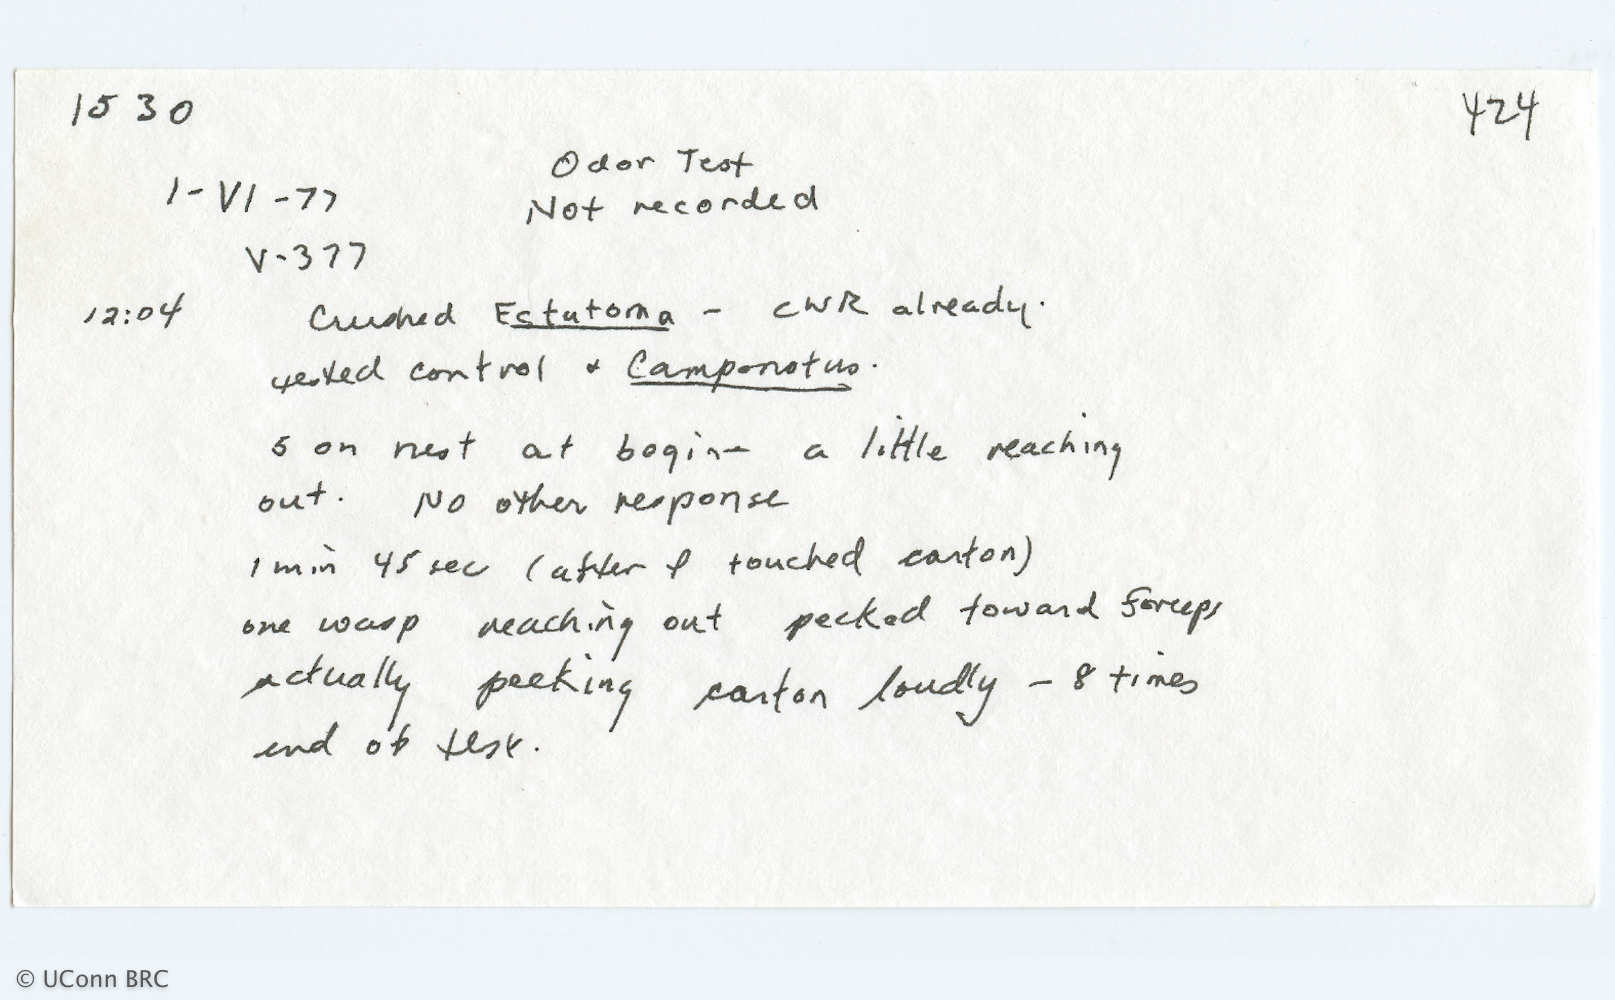 1530
424
Odor Test
1-VI-77
Not recorded
V-377
12:04 Crushed Ectatoma - CWR already.
tested control + Camponotus.
5 on nest at begin - a little reaching
out. No other response
1 min 45 sec (after I touched carton)
one wasp reaching out pecked toward forceps
actually pecking carton loudly - 8 times
end of test.
© UConn BRC